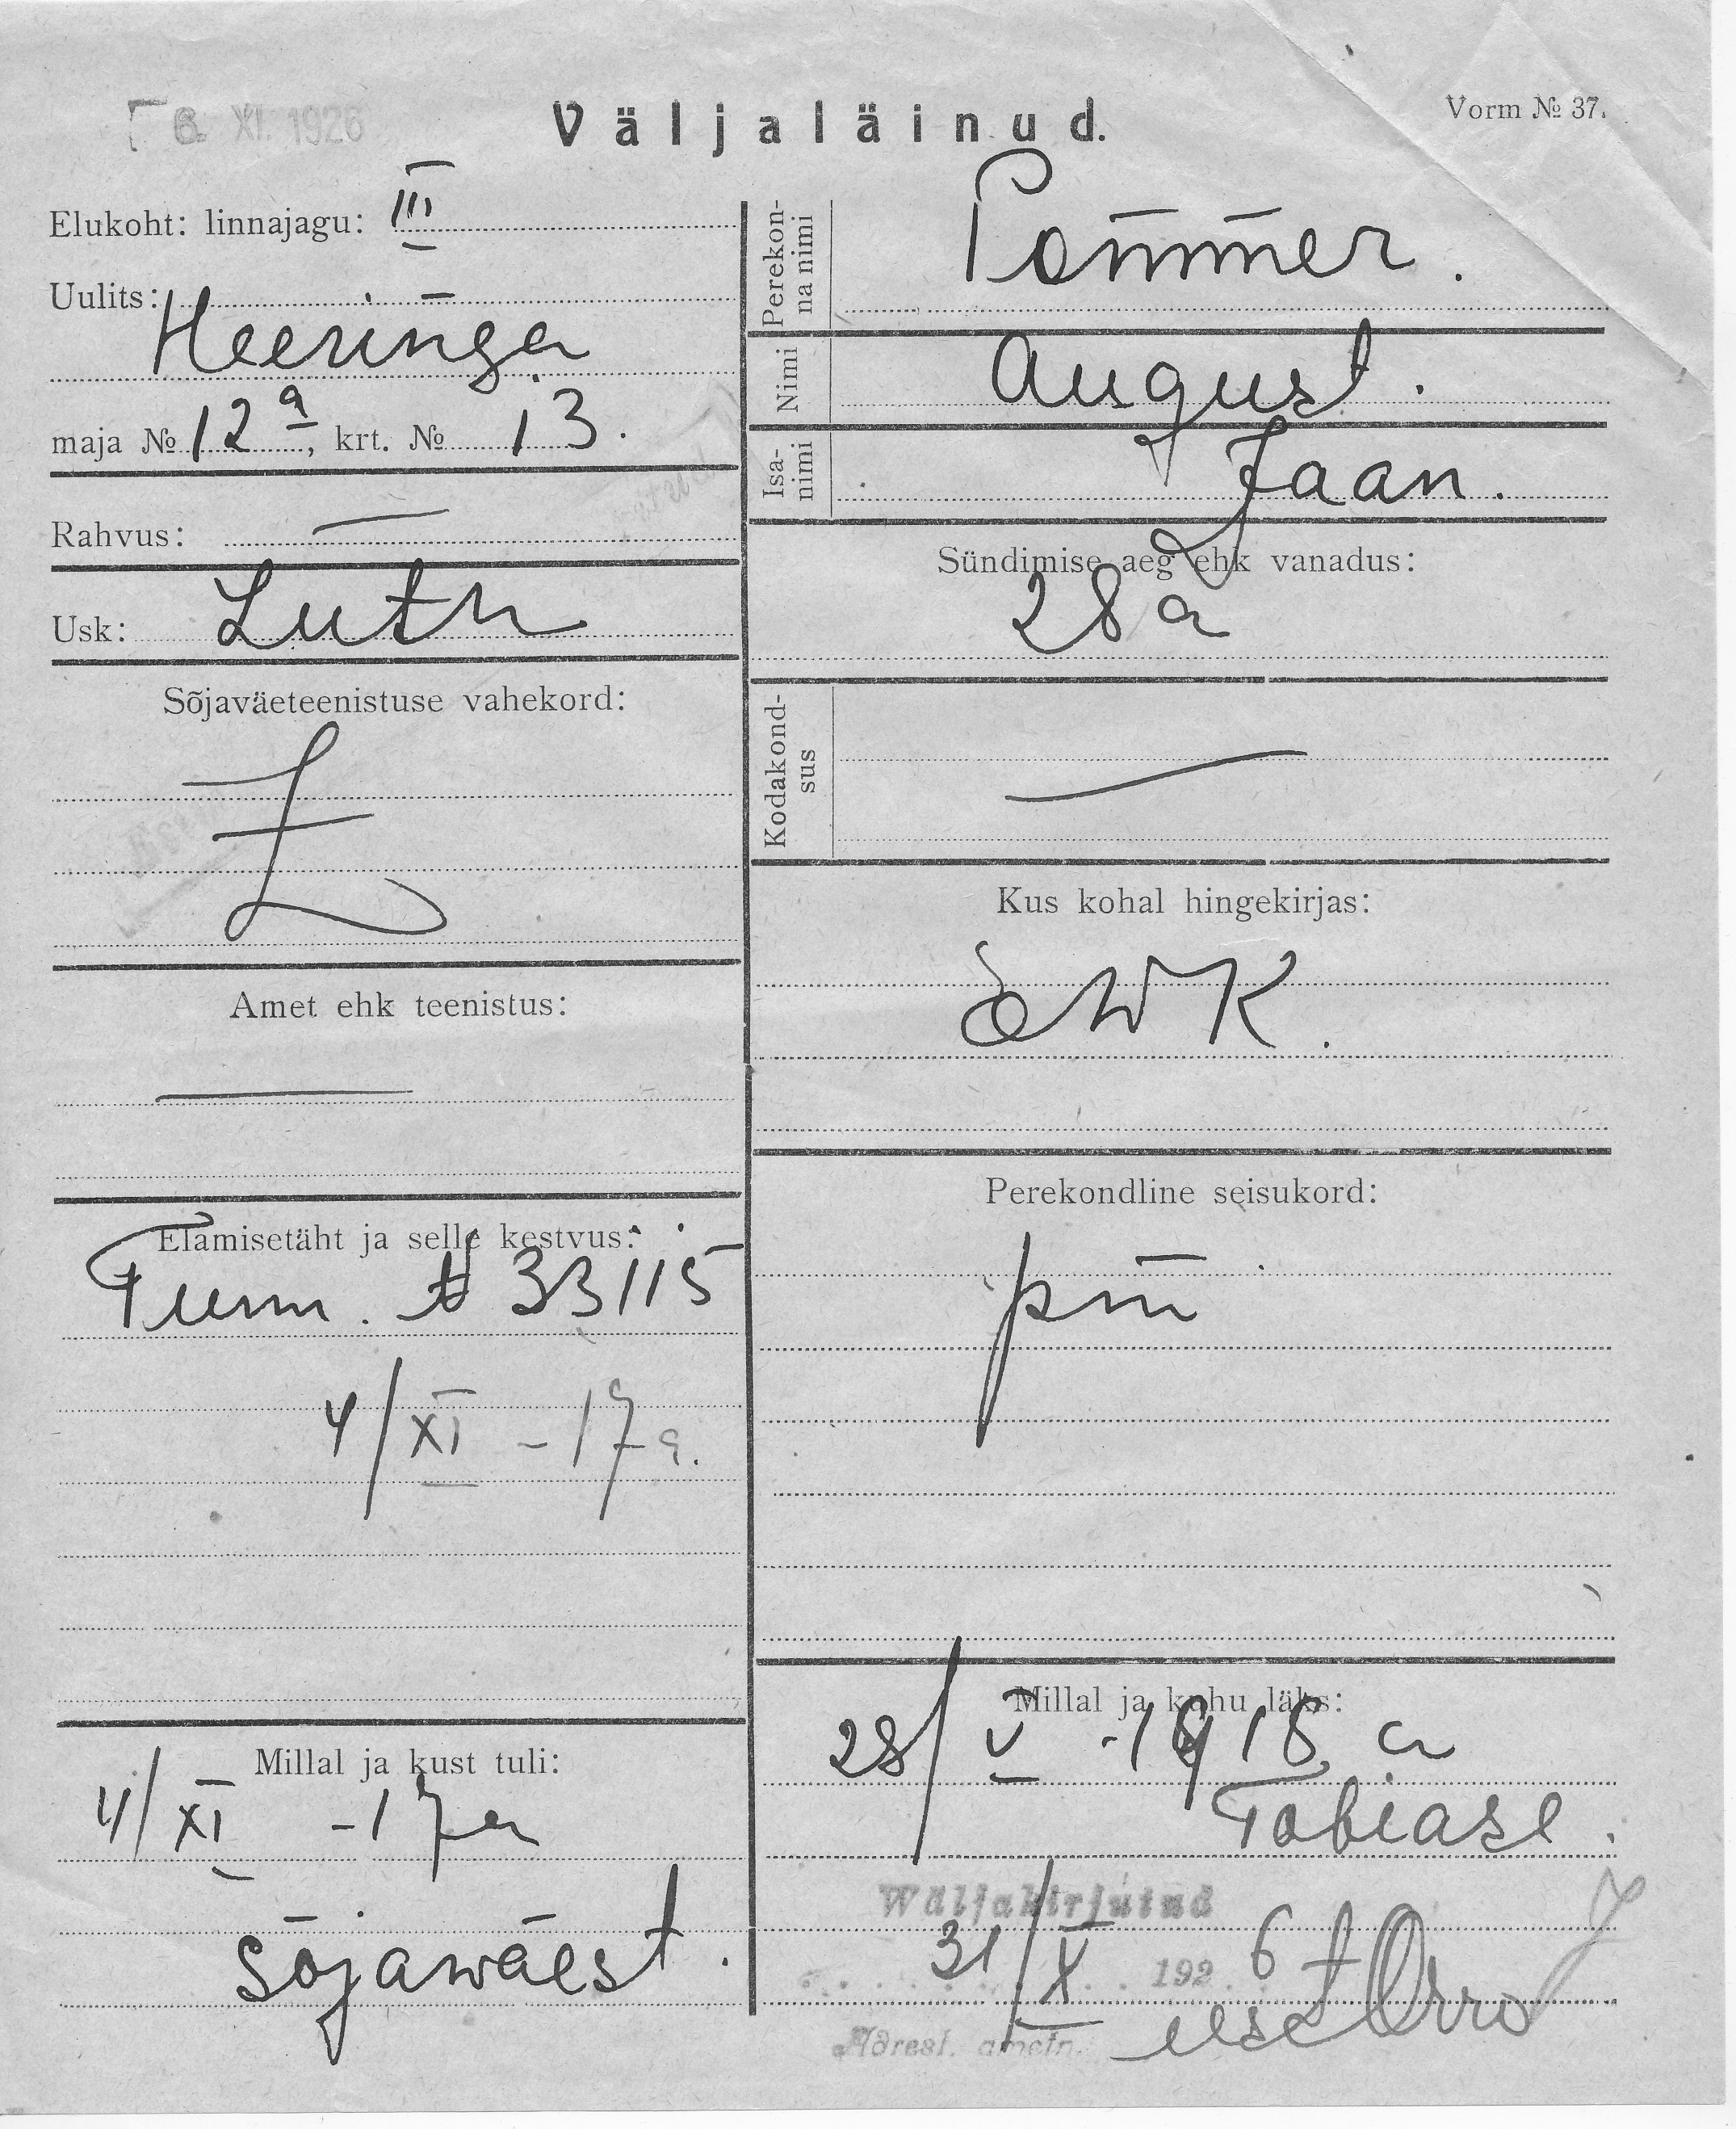 6. XI. 1926
Väljaläinud.
Vorm № 37.
Elukoht: linnajagu: III
Uulits:
Heeringa
maja № 12a, krt. № 13.
Rahvus: —
Usk: Luth
Sõjaväeteenistuse vahekord:
Amet ehk teenistus:
—
Elamisetäht ja selle kestvus:
Tunn. № 33115
4/XI - 17 a.
Millal ja kust tuli:
4/XI - 17 a
sõjawäest.
Perekonna nimi
Pommer.
Nimi
August.
Isanimi
Jaan.
Sündimise aeg ehk vanadus:
28 a
Kodakondsus
—
Kus kohal hingekirjas:
Perekondline seisukord:
Millal ja kuhu läks:
28/V - 1918 a
Tobiase.
Wäljakirjutud
31/X 1926
Adresl. ametn.